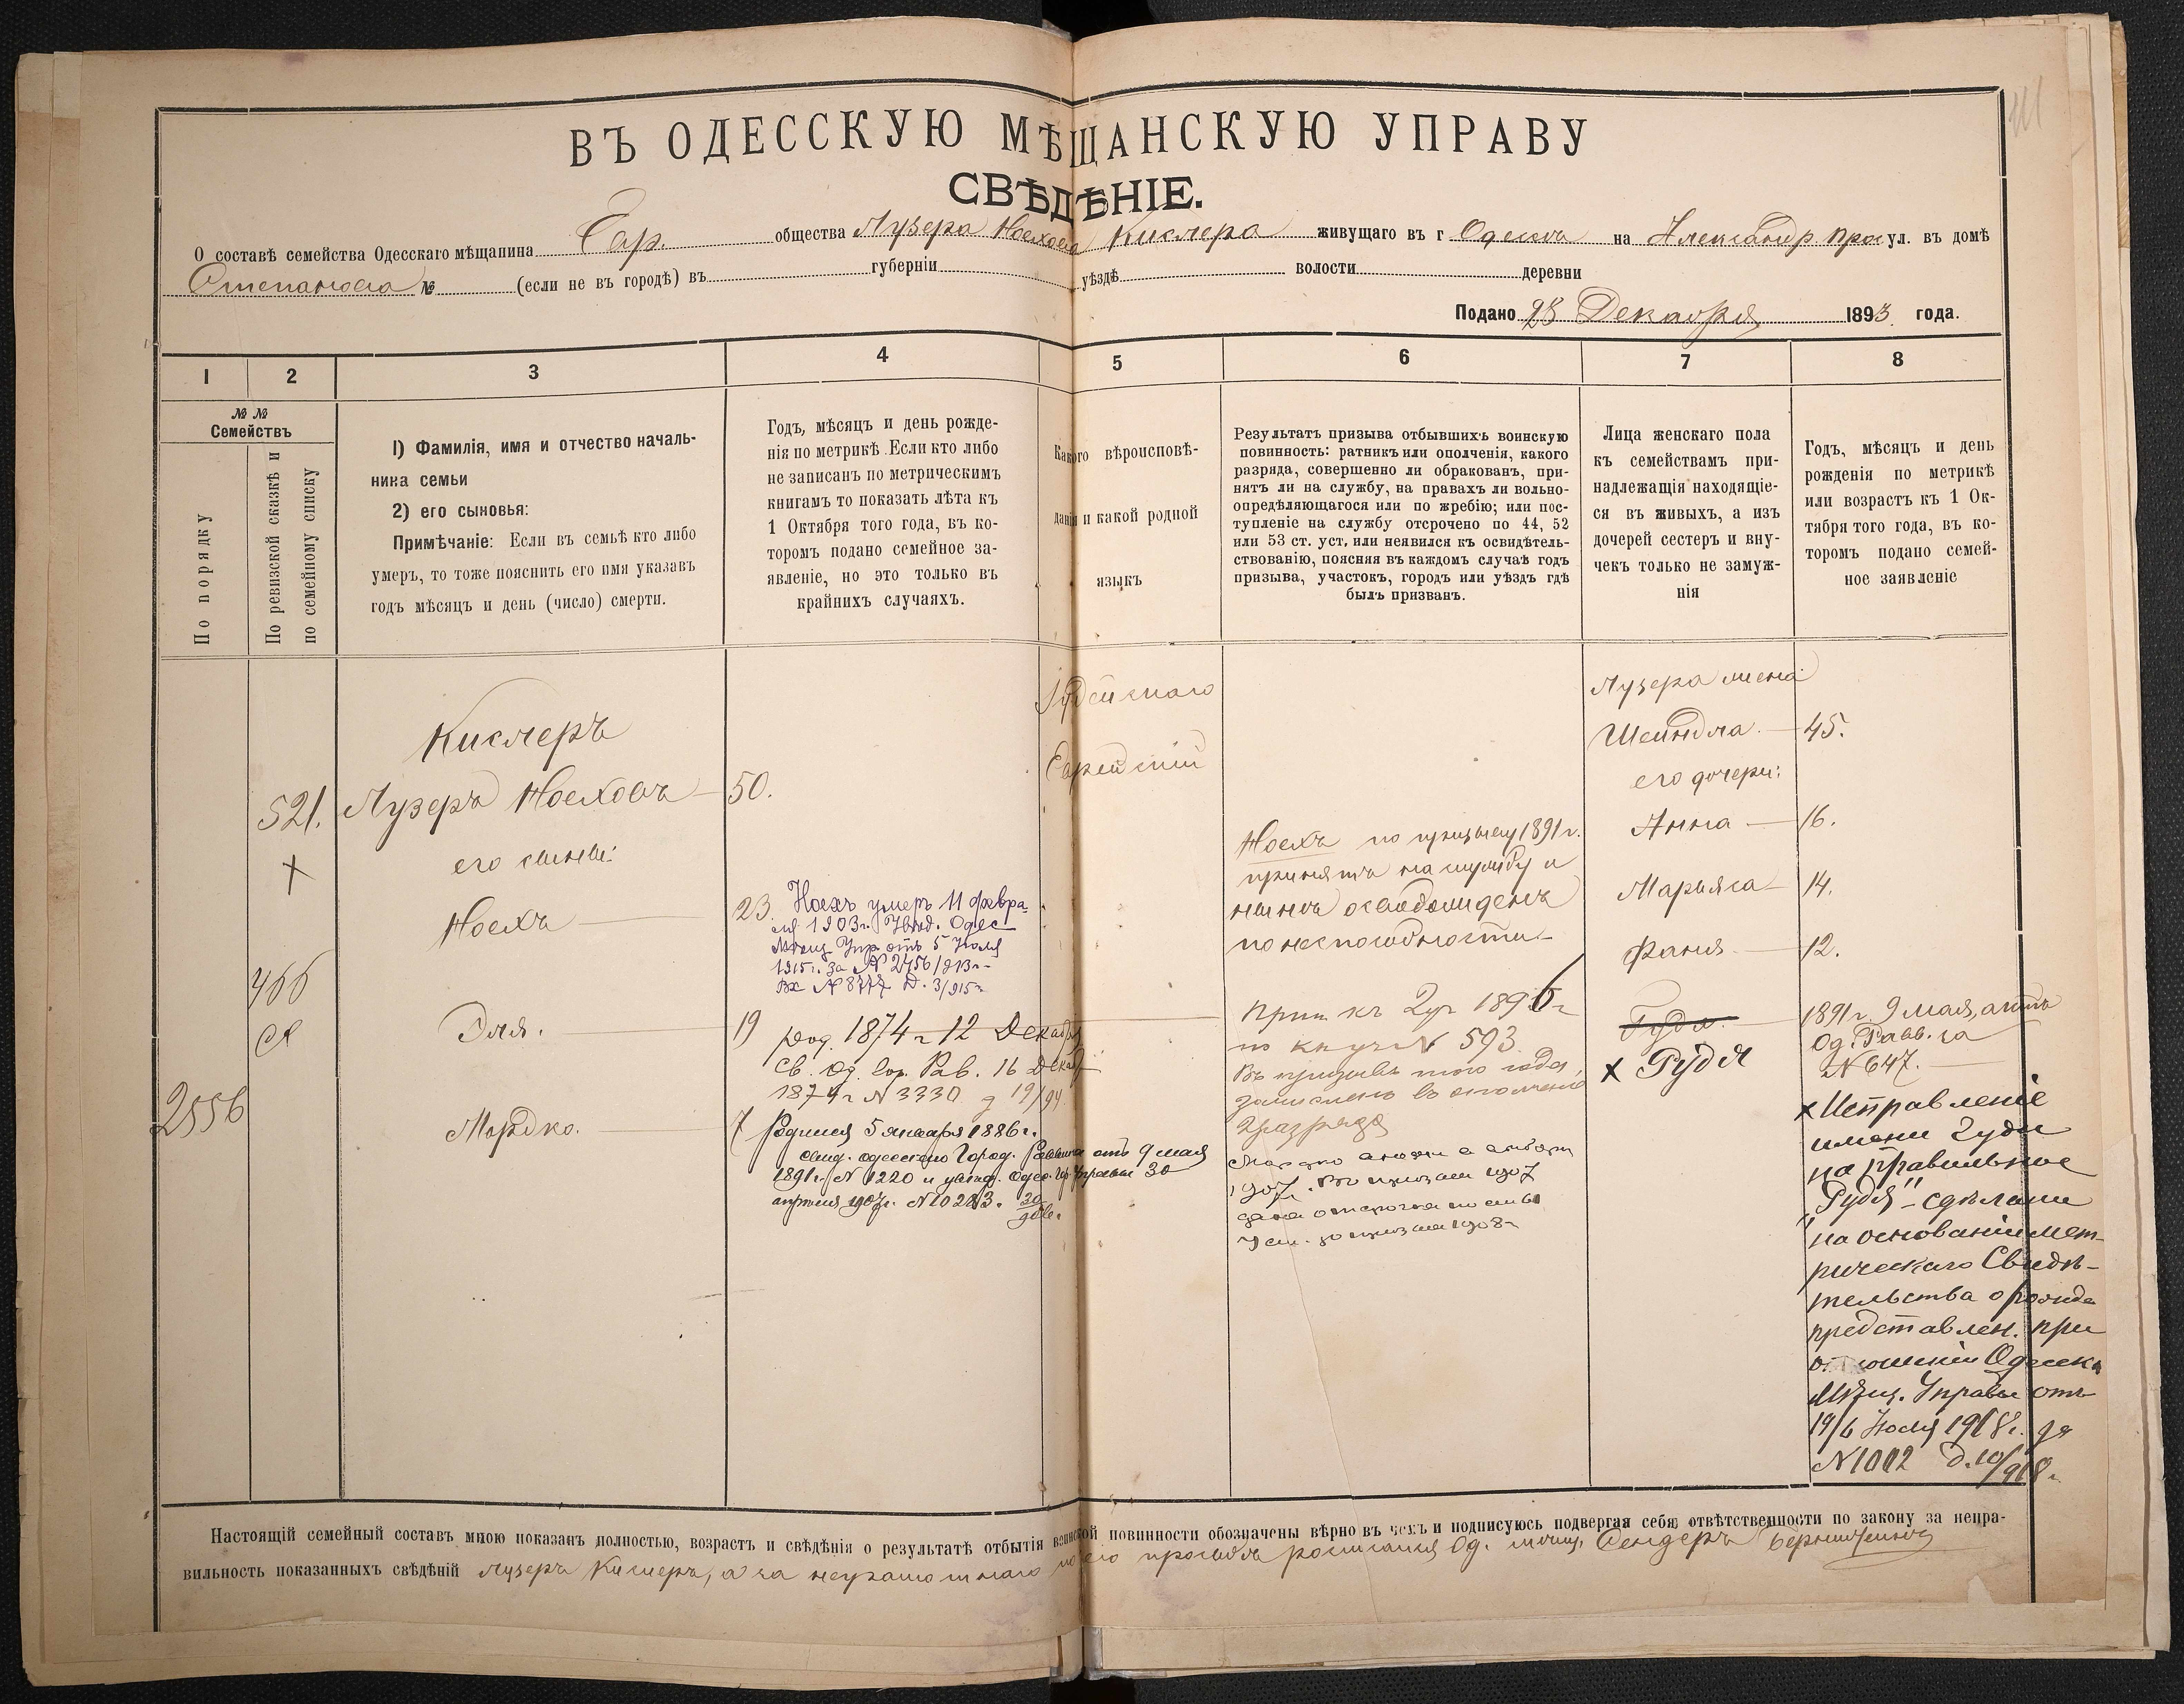 ВЪ ОДЕССКУЮ МѢЩАНСКУЮ УПРАВУ
СВѢДѢНІЕ.
О составѣ семейства Одесскаго мѣщанина Евр. общества Лузера Ноехова Кислера живущаго въ г Одессѣ на Александр. прос ул. въ домѣ
Степанова № (если не въ городѣ) въ губерніи уѣздѣ волости деревни
Подано 28 Декабря 1893 года.
1 2 3 4 5 6 7 8
№ №
Семействъ
По порядку
По ревизской сказкѣ и
по семейному списку
1) Фамилія, имя и отчество началь-
ника семьи
2) его сыновья:
Примѣчаніе: Если въ семьѣ кто либо
умеръ, то тоже пояснить его имя указавъ
годъ мѣсяцъ и день (число) смерти.
Годъ, мѣсяцъ и день рожде-
нія по метрикѣ. Если кто либо
не записанъ по метрическимъ
книгамъ то показать лѣта къ
1 Октября того года, въ ко-
торомъ подано семейное за-
явленіе, но это только въ
крайнихъ случаяхъ.
Какого вѣроисповѣ-
данія и какой родной
языкъ
Результатъ призыва отбывшихъ воинскую
повинность: ратникъ или ополченія, какого
разряда, совершенно ли обракованъ, при-
нятъ ли на службу, на правахъ ли вольно-
опредѣляющагося или по жребію; или пос-
тупленіе на службу отсрочено по 44, 52
или 53 ст. уст, или неявился къ освидѣтель-
ствованію, поясняя въ каждомъ случаѣ годъ
призыва, участокъ, городъ или уѣздъ гдѣ
былъ призванъ.
Лица женскаго пола
къ семействамъ при-
надлежащія находящіе-
ся въ живыхъ, а изъ
дочерей сестеръ и вну-
чекъ только не замуж-
нія
Годъ, мѣсяцъ и день
рожденія по метрикѣ
или возрастъ къ 1 Ок-
тября того года, въ ко-
торомъ подано семей-
ное заявленіе
Кислеръ
521. Лузеръ Ноеховъ 50.
х
его сыновья:
Ноехъ 23.
Ноехъ умеръ 11 февра-
ля 1903 г. Увѣд. Одес
Мѣщ Упр. отъ 5 Іюля
1915 г. за № 2756/913 г.
Вх № 8777 Д. 3/915 г
466
Эля. 19
род. 1874 г 12 Декабря
св. Од. гор. Рав. 16 Декаб
1874 г № 3330 д 19/94.
2556
Мордко. 7
Родился 5 января 1886 г.
свид. одесскаго Город. Раввина отъ 9 мая
1891 г. № 1220 и увѣд. Одес. Гор Управы 30
апрѣля 1907 г. № 10213. 30/906 г.
Іудейскаго
Еврейскій
Ноехъ по призыву 1891 г.
принятъ на службу и
нынѣ освобожденъ
по неспособности
Прип къ 2 уч 1896 г
по кн уч № 593
Въ призывѣ того года
зачисленъ въ ополченіе
2 разряда
1907 г. Въ призывѣ 1907
дана отсрочка
призыва 1908 г
Лузера жена
Шейндла. 45.
его дочери:
Анна 16.
Марьяса 14.
Фаня 12.
Гудя. 1891 г. 9 мая, актъ
Од. Равв. за
№ 647.
х Рудя
х Исправленіе
имени Гуди
на правильное
"Рудя" - сдѣлано
на основаніи мет-
рическаго Свидѣ-
тельства о рожде
представлен. при
отношеніи Одесск
Мѣщ. Управы отъ
19/6 Іюля 1918 г. за
№ 1002 д. 10/918 г.
Настоящій семейный составъ мною показанъ полностью, возрастъ и свѣдѣнія о результатѣ отбытія воинской повинности обозначены вѣрно въ чемъ и подписуюсь подвергая себя отвѣтственности по закону за непра-
вильность показанныхъ свѣдѣній Лузеръ Кислеръ, а за неграмотнаго по его просьбѣ росписался Од. мѣщ. Сендеръ Бернштейнъ